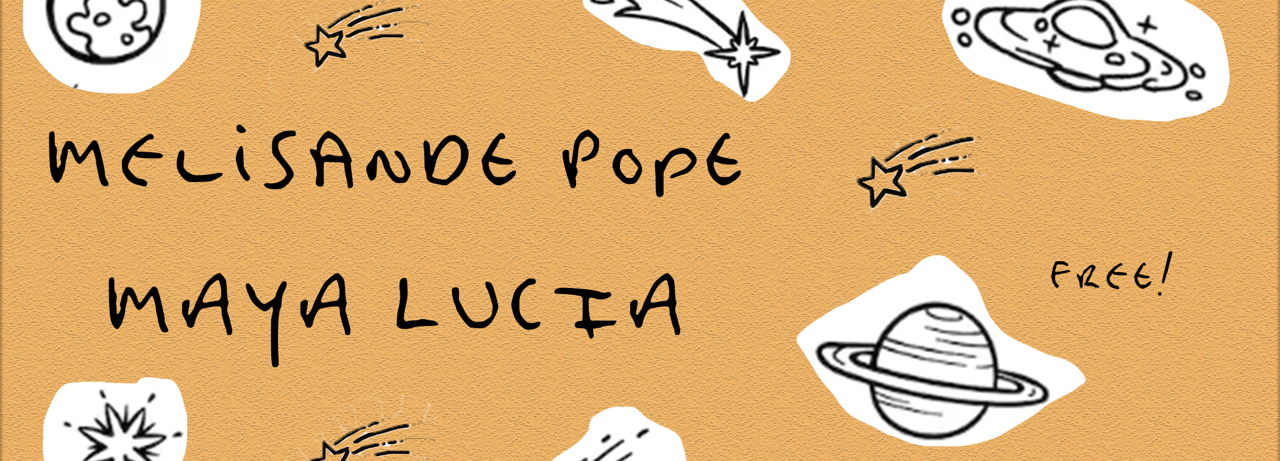 MELiSANDE POPE
MAYA LUCIA
FREE!